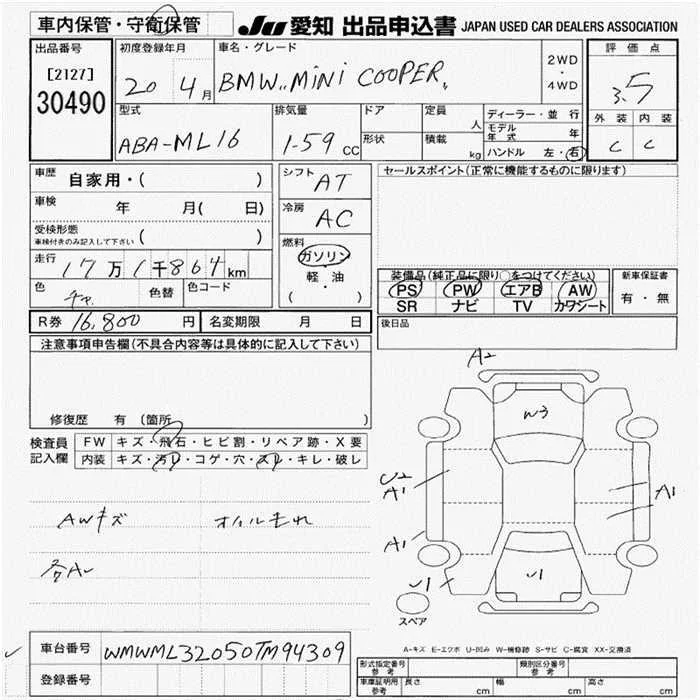 車内保管・守衛保管 JU 愛知 出品申込書 JAPAN USED CAR DEALERS ASSOCIATION
出品番号
[2127]
30490
初度登録年月
20 4月
車名・グレード
BMW,, MiNi COOPER,
2WD
・
4WD
評価点
3.5
外装 内装
C C
型式
ABA-ML16
排気量
1-59 CC
ドア
形状
定員 人
積載 kg
ディーラー・並行
モデル年式 年
ハンドル 左・右
車歴 自家用・( )
車検 年 月( 日)
受検形態
車検付きのみ記入して下さい ( )
走行 17万1千864km
色 色替 色コード
シフト AT
冷房 AC
燃料
ガソリン
軽・油
( )
セールスポイント(正常に機能するものに限ります)
装備品(純正品に限り○をつけてください)
PS PW エアB AW
SR ナビ TV カワシート
新車保証書
有・無
R券 16,800円 名変期限 月 日
後日品
注意事項申告欄(不具合内容等は具体的に記入して下さい)
修復歴 有 (箇所
検査員記入欄
FW キズ・飛石・ヒビ割・リペア跡・X要
内装 キズ・汚レ・コゲ・穴・スレ・キレ・破レ
AWキズ オイルもれ
A2
W3
U2
A1
A1
A1
U1
U1
スペア
A-キズ E-エクボ U-凹み W-補修跡 S-サビ C-腐食 XX-交換済
車台番号 WMWML32050TM94309
登録番号
型式指定番号 参考
類別区分番号 参考
車庫証明用 参考 長さ cm 幅 cm 高さ cm